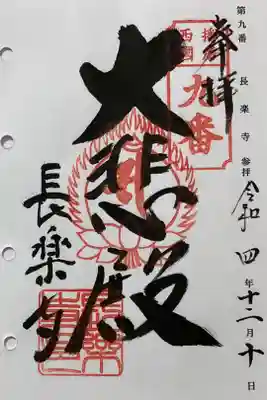 第九番 長楽寺 参拝 令和四年十二月十日
奉拝
摂州
西國
九番
大悲殿
長楽寺